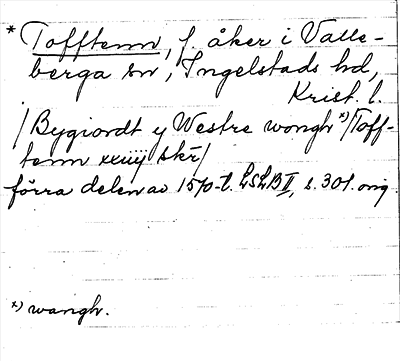 * Tofftenn, f. åker i Valle-
berga sn, Ingelstads hd,
Krist. l.
/Bygiordt y Westre wongh *)/Toff-
tenn xxiiij skr/
förra delen av 1570-t. LSLB II, s. 301. orig.
*) wangh.